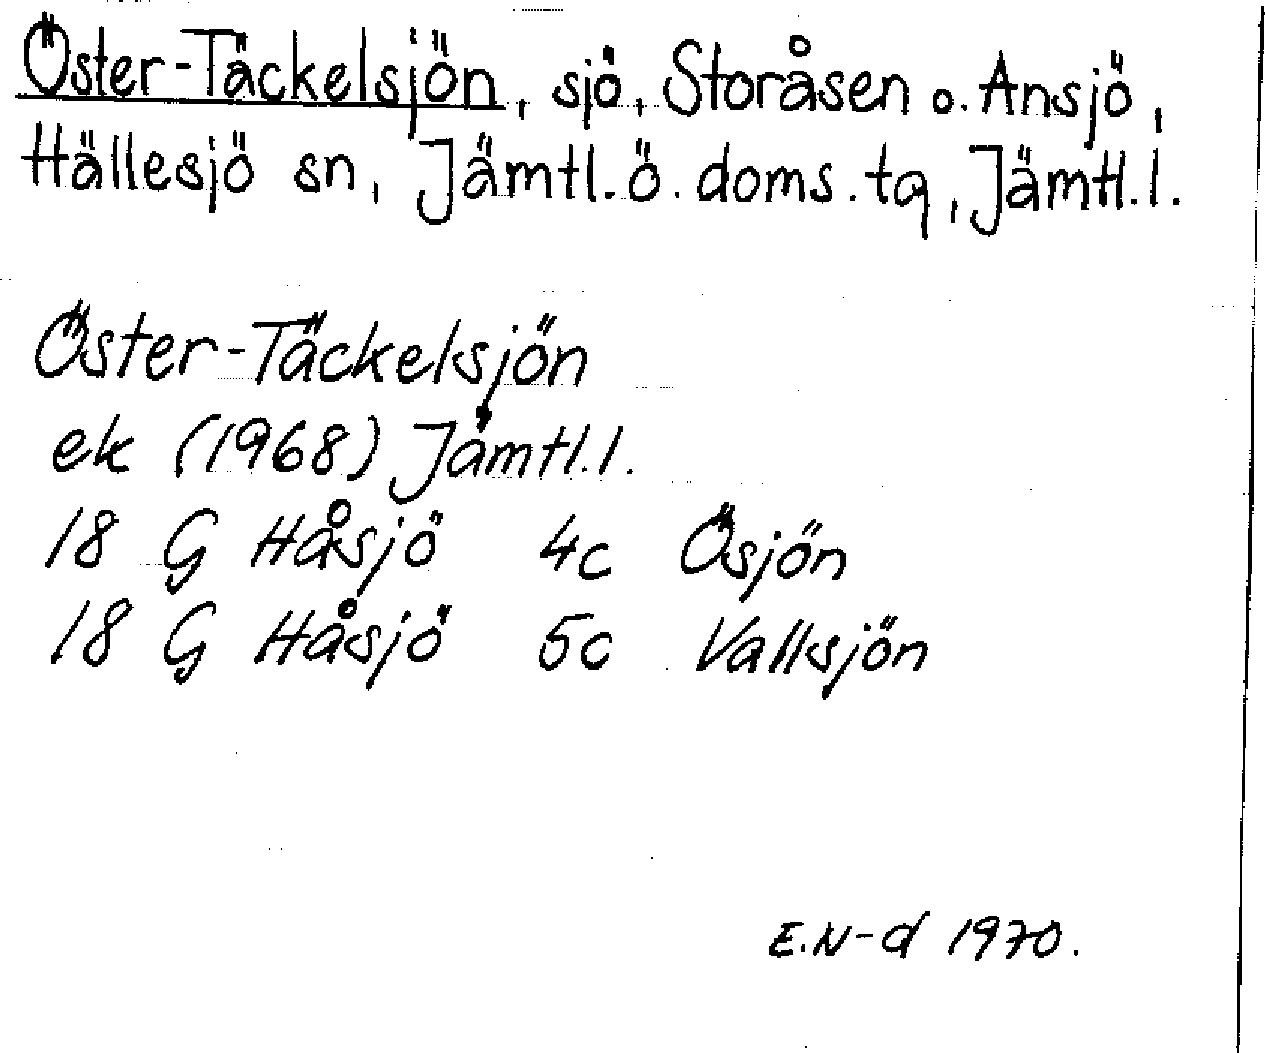 Öster-Täckelsjön, sjö, Storåsen o. Ansjö,
Hällesjö sn, Jämtl. ö. doms. tg, Jämtl. l.
Öster-Täckelsjön
ek (1968) Jämtl. l.
18 G Håsjö 4c Ösjön
18 G Håsjö 5c Vallsjön
E.N-d 1970.